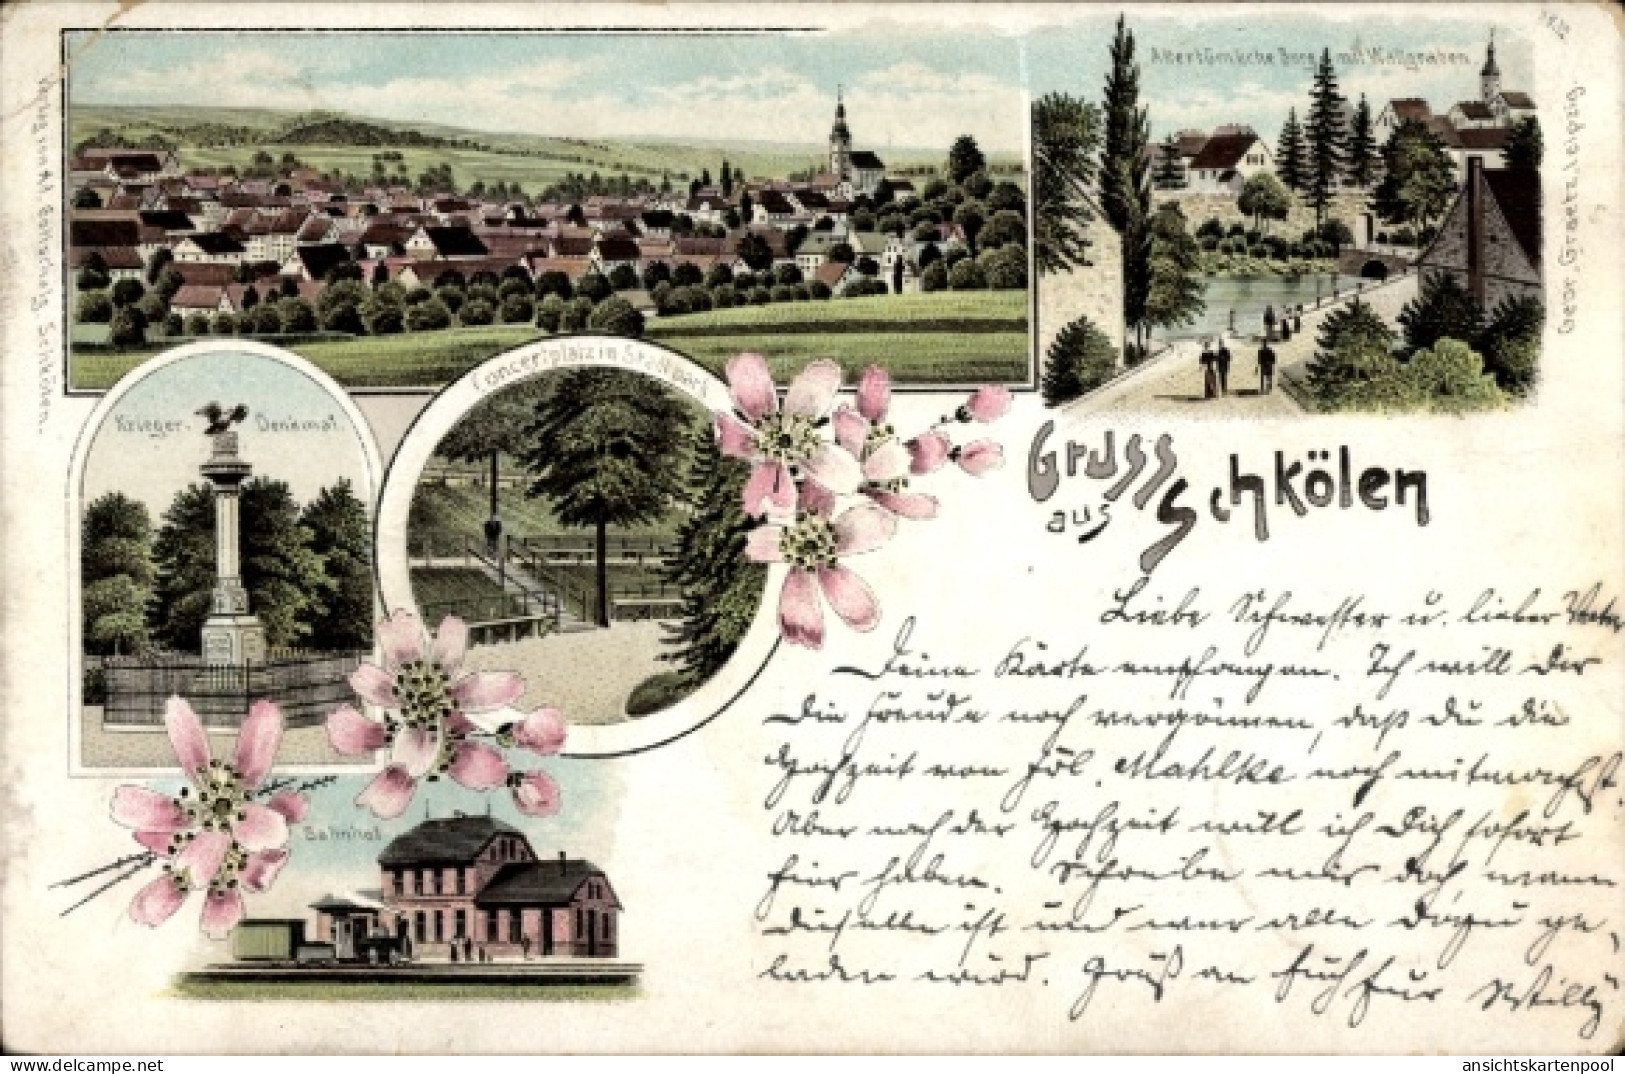 Altertümliche Burg mit Wallgraben.
Concertplatz im Stadtpark
Krieger-Denkmal.
Gruss
aus
Schkölen
Bahnhof
Schkölen.
Gebr. Graetz, Leipzig.
Liebe Schwester u. lieber
Deine Karte empfangen. Ich will Dir
die Freude noch vergönnen, daß du die
Hochzeit von Frl. Mahlke noch mitmachst.
Aber nach der Hochzeit will ich Dich sofort
hier haben. Schreibe mir doch, wann
dieselbe ist und wer alle dazu ge-
laden wird. Gruß an Euch Euer Willy
www.delcampe.net
ansichtskartenpool